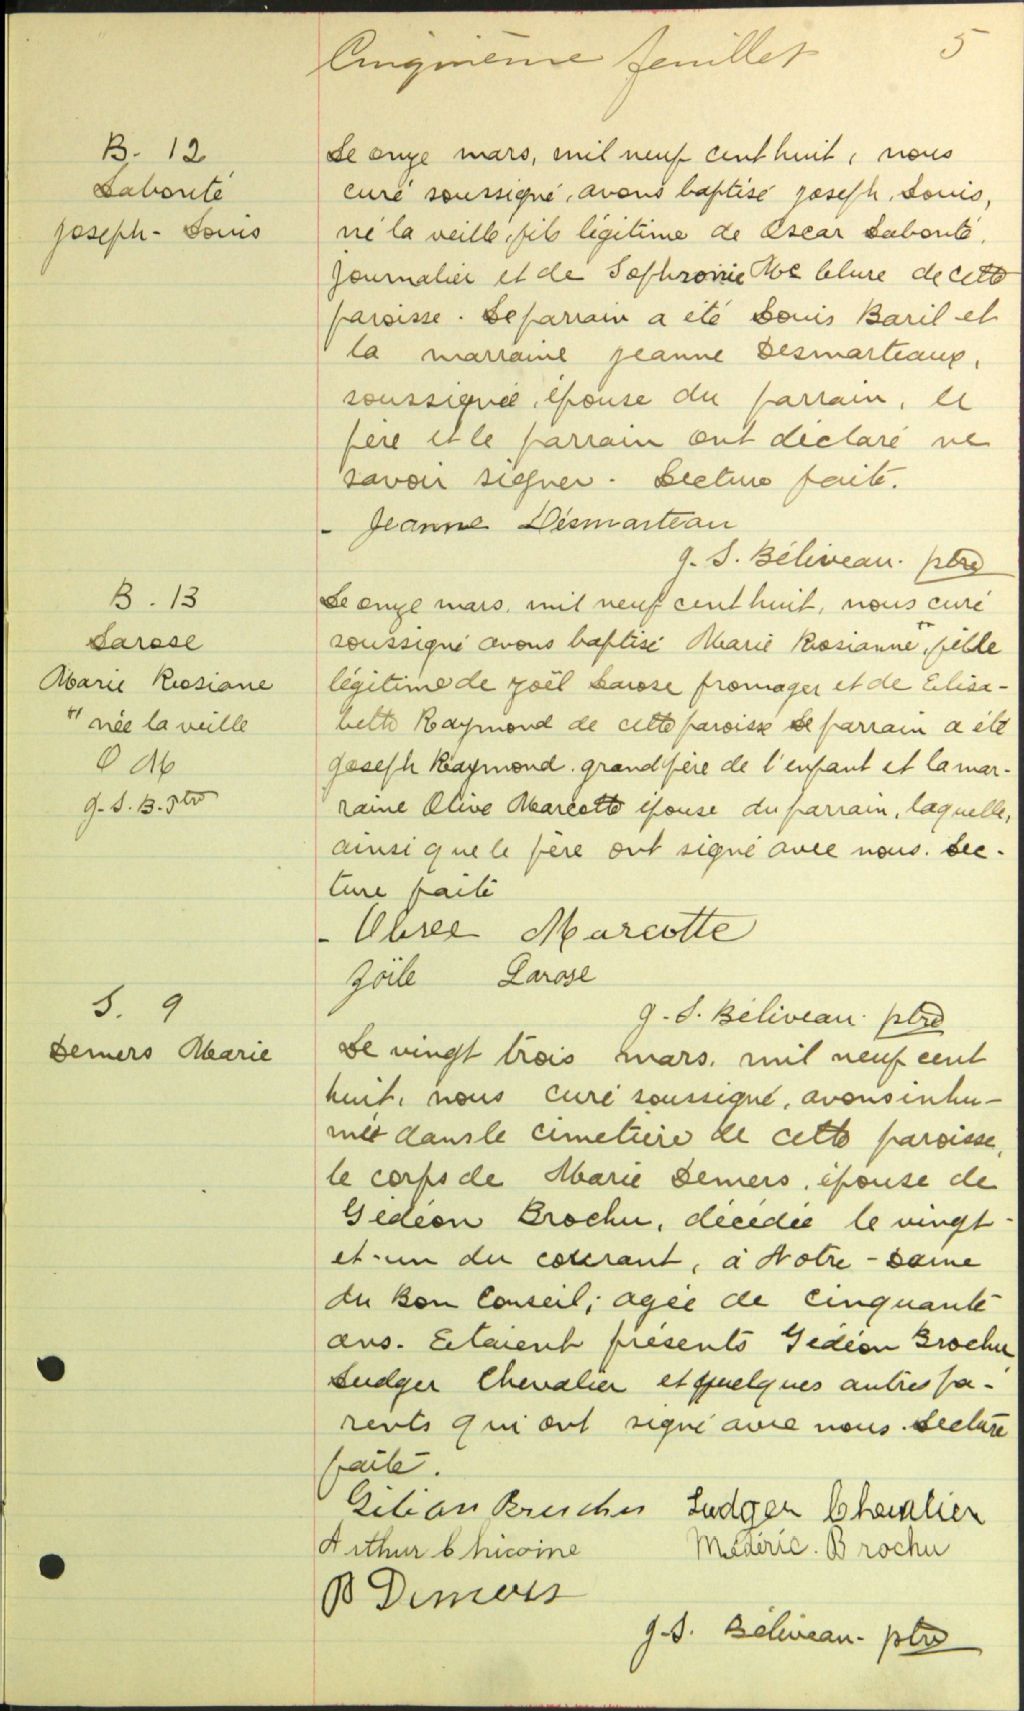 Cinquième feuillet 5
B. 12
Labonté
Joseph-Louis
Le onze mars, mil neuf cent huit, nous
curé soussigné, avons baptisé Joseph, Louis,
né la veille, fils légitime de Oscar Labonté,
journalier et de Sophronie Mc Clure de cette
paroisse. Le parrain a été Louis Baril et
la marraine Jeanne Desmarteaux,
soussignée, épouse du parrain, le
père et le parrain ont déclaré ne
savoir signer. Lecture faite.
- Jeanne Désmarteau
J. S. Béliveau. ptre
B. 13
Larose
Marie Rosiane
" née la veille
O M
J. S. B. Ptre
Le onze mars, mil neuf cent huit, nous curé
soussigné avons baptisé Marie Rosianne ", fille
légitime de Joël Larose fromager et de Elisa-
beth Raymond de cette paroisse Le parrain a été
Joseph Raymond. grandpère de l'enfant et la mar-
raine Olive Marcotte épouse du parrain, laquelle,
ainsi que le père ont signé avec nous. Lec-
ture faite
- Marcotte
Joïle Larose
J. S. Béliveau. ptre
S. 9
Demers Marie
Le vingt trois mars, mil neuf cent
huit, nous curé soussigné, avons inhu-
mé dans le cimetière de cette paroisse,
le corps de Marie Demers, épouse de
Gédéon Brochu, décédée le vingt-
et-un du courant, à Notre-Dame
du Bon Conseil; agée de cinquante
ans. Etaient présents Gédéon Brochu
Ludger Chevalier et quelques autres pa-
rents qui ont signé avec nous. Lecture
faite.
Brochu Ludger Chevalier
Arthur Chicoine Médéric. Brochu
J. S. Béliveau. ptre